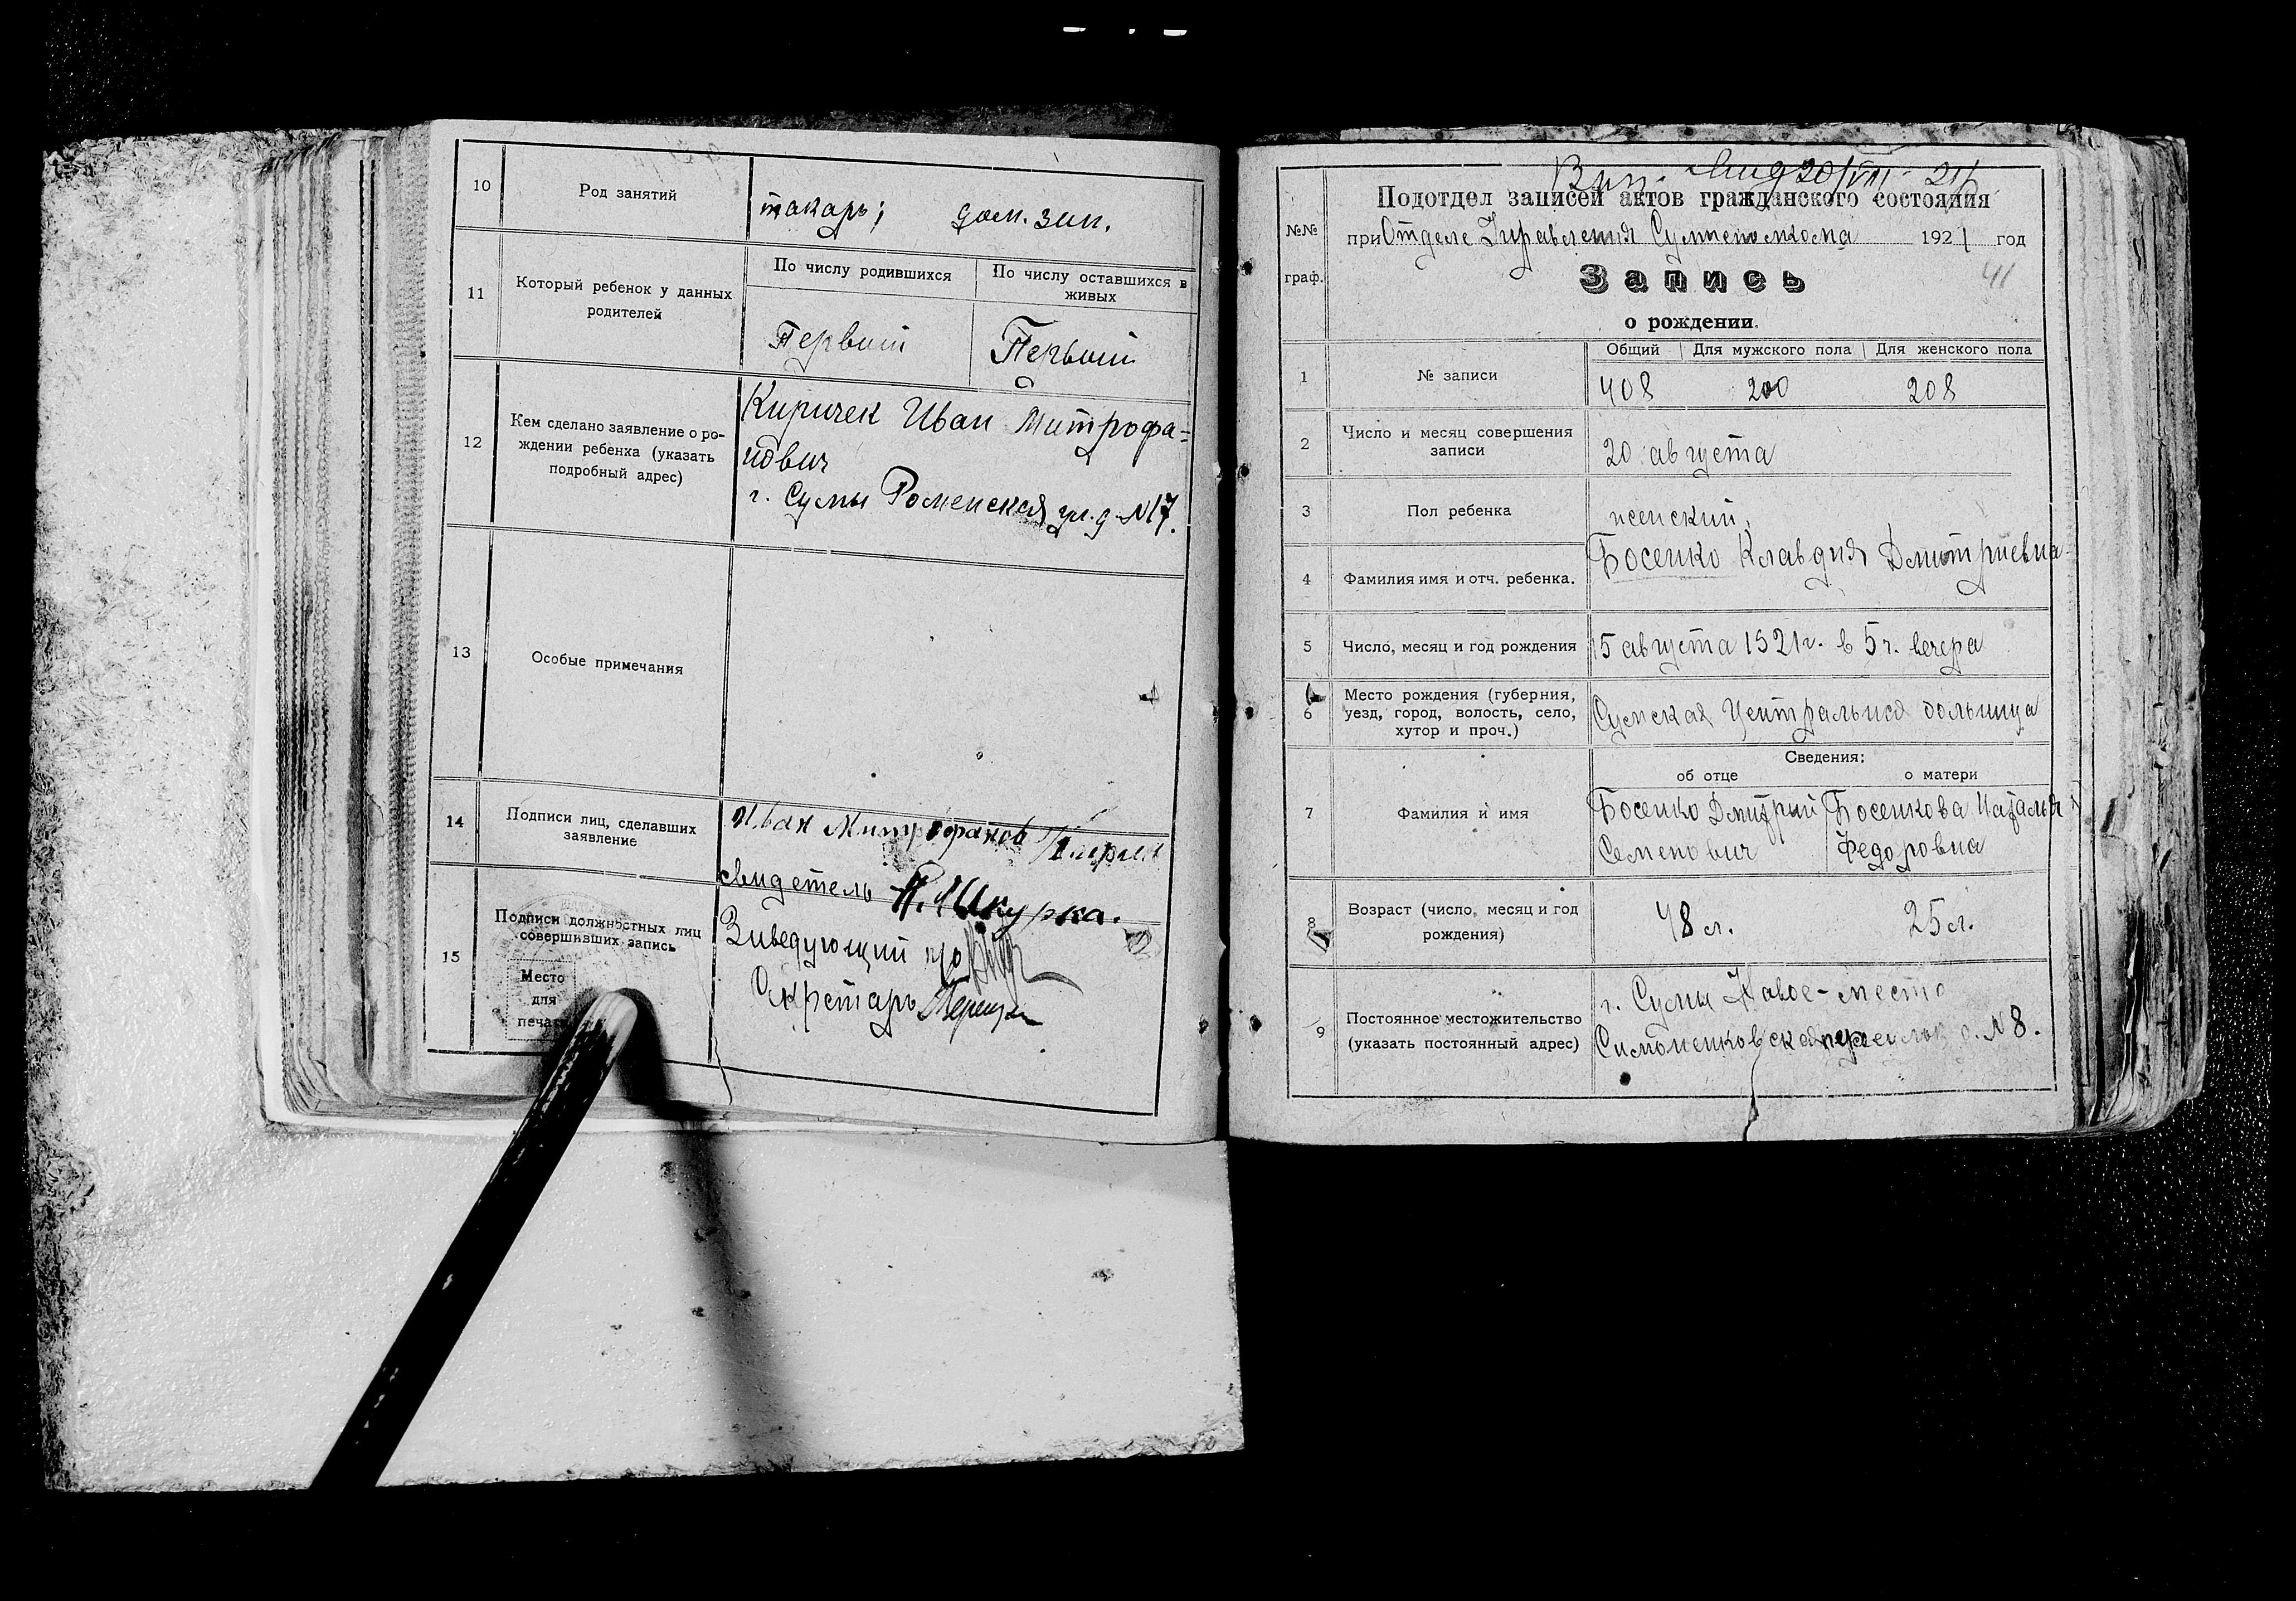 10
Род занятий
токарь; дом. зан.
11
Который ребенок у данных
родителей
По числу родившихся
По числу оставшихся в
живых
Первый
Первый
12
Кем сделано заявление о ро-
ждении ребенка (указать
подробный адрес)
Киричек Иван Митрофа=
нович
г. Сумы Роменская ул. д. N17.
13
Особые примечания
14
Подписи лиц, сделавших
заявление
Иван Митрофанов
свидетель Шкурка.
15
Подписи должностных лиц
совершивших запись
Место
для
печати
Заведующий п/о
Секретарь
20/VIII-21
№№
граф.
Подотдел записей актов гражданского состояния
при Отделе Управления Сумисполкома 1921 год
41
Запись
о рождении.
1
№ записи
Общий Для мужского пола Для женского пола
408 200 208
2
Число и месяц совершения
записи
20 августа
3
Пол ребенка
женский
4
Фамилия имя и отч. ребенка.
Босенко Клавдия Дмитриевна
5
Число, месяц и год рождения
15 августа 1921г. в 5 ч. вечера
6
Место рождения (губерния,
уезд, город, волость, село,
хутор и проч.)
Сумская Центральная больница
Сведения:
об отце о матери
7
Фамилия и имя
Босенко Дмитрий
Семенович
Босенкова Наталья
Федоровна
8
Возраст (число, месяц и год
рождения)
48 л. 25 л.
9
Постоянное местожительство
(указать постоянный адрес)
г. Сумы Новое-место
Симоненковская д. N8.